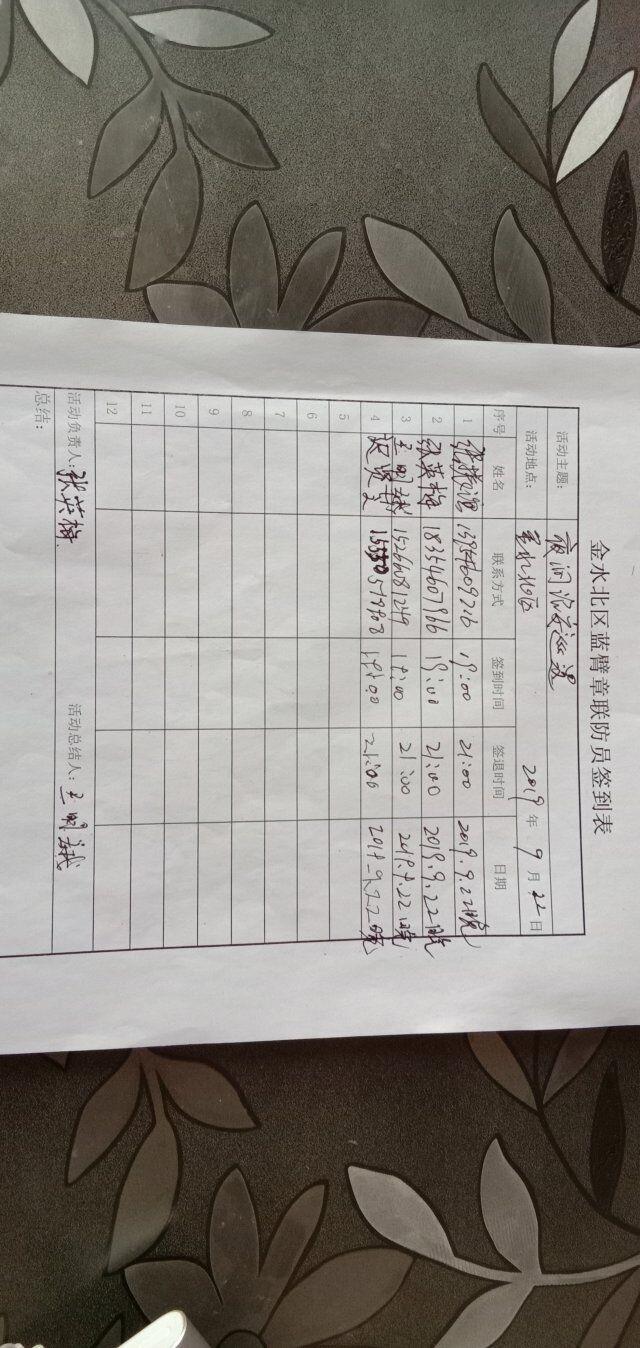 金水北区蓝臂章联防员签到表
活动主题： 夜间治安巡逻
活动地点： 金水北区 2019 年 9 月 22 日
序号 姓名 联系方式 签到时间 签退时间 日期
1 19:00 21:00 2019.9.22晚
2 张英梅 18354607966 19:00 21:00 2019.9.22晚
3 王明娥 15266081249 19:00 21:00 2019.9.22晚
4 19:00 21:00 2019-9.22晚
5
6
7
8
9
10
11
12
活动负责人：张英梅 活动总结人：王明娥
总结：